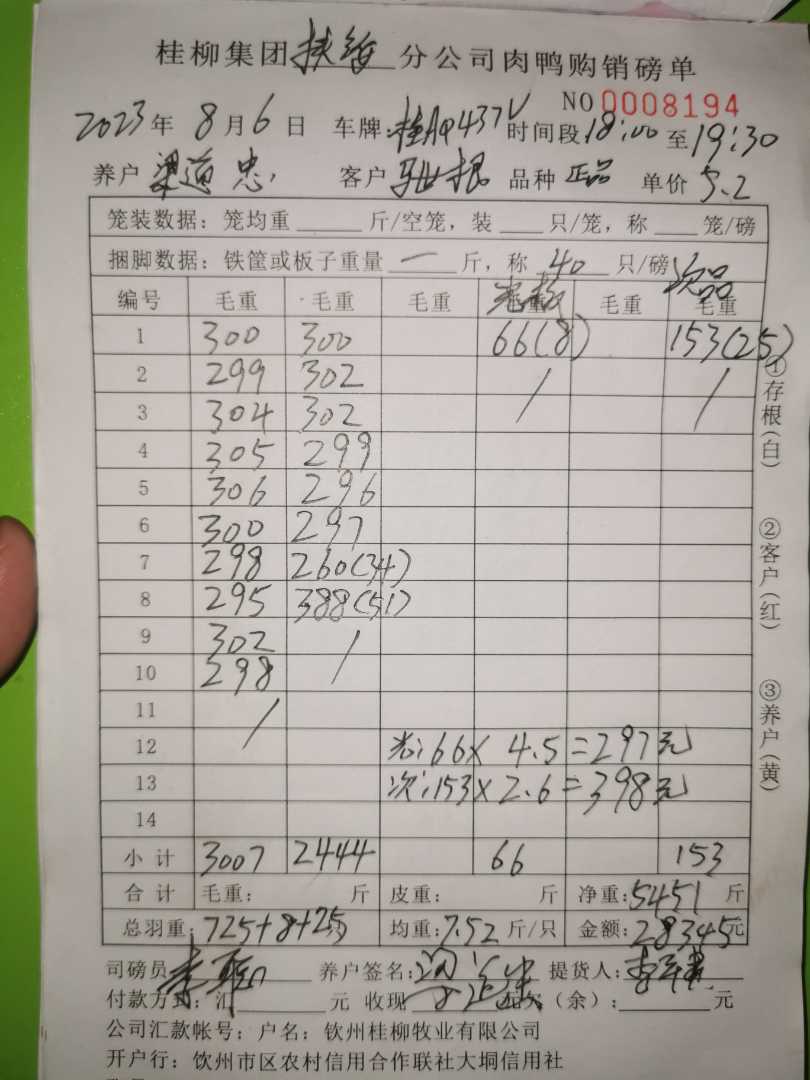 桂柳集团 分公司肉鸭购销磅单
NO 0008194
2023年 8月6日 车牌: 437V 时间段18:00至19:30
养户 梁道忠 客户 根 品种 正品 单价 5.2
笼装数据: 笼均重 斤/空笼, 装 只/笼, 称 笼/磅
捆脚数据: 铁筐或板子重量 一 斤, 称 40 只/磅 次品
编号 毛重 毛重 毛重 毛重 毛重
1 300 300 66(8) 153(25)
2 299 302 / /
3 304 302
4 305 299
5 306 296
6 300 297
7 298 260(34)
8 295 388(51)
9 302 /
10 298
11 /
12 光:66×4.5=297元
13 次:153×2.6=398元
14
小计 3007 2444 66 153
合计 毛重: 斤 皮重: 斤 净重:5451 斤
总羽重:725+8+25 均重:7.52 斤/只 金额:28345元
司磅员 李 养户签名: 提货人:
付款方式:汇 元 收现 元欠(余): 元
公司汇款帐号: 户名: 钦州桂柳牧业有限公司
开户行: 钦州市区农村信用合作联社大垌信用社
①存根(白)
②客户(红)
③养户(黄)